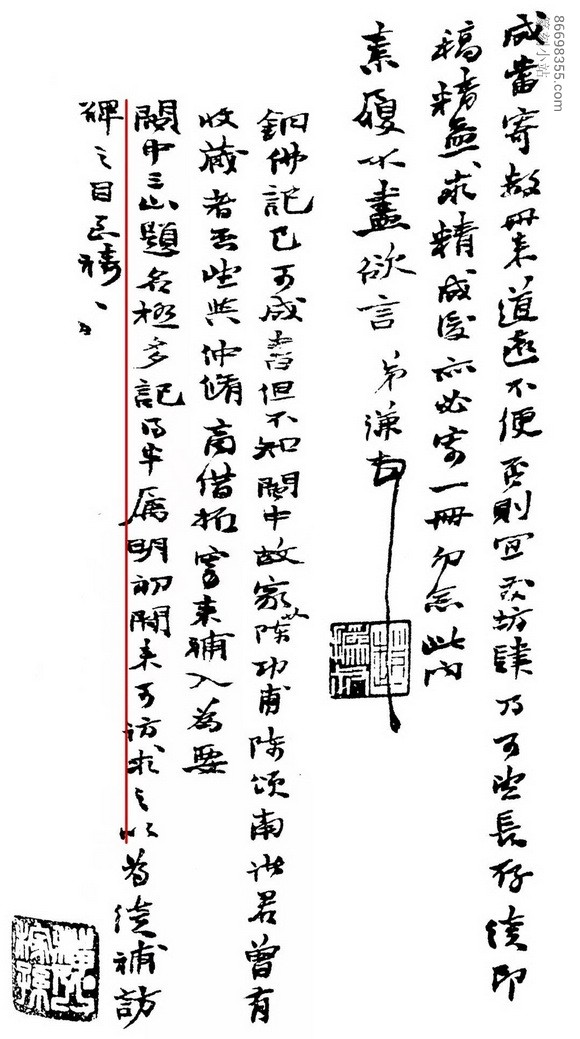 成當寄數冊來道遠不便否則宜發坊肆乃可望長存續印
稿精益求精成後亦必寄一冊勿此
素履不盡欲言 弟謙
銅佛記已可成書但不知閩中故家陳功甫陳頌南諸君曾有
收藏者否望與仲脩商借拓寄來補入為要
閩中三山題名極多記得半屬明初閩來可訪求之以為續補訪
碑之目至禱、又
86698355.com
篆刻小站